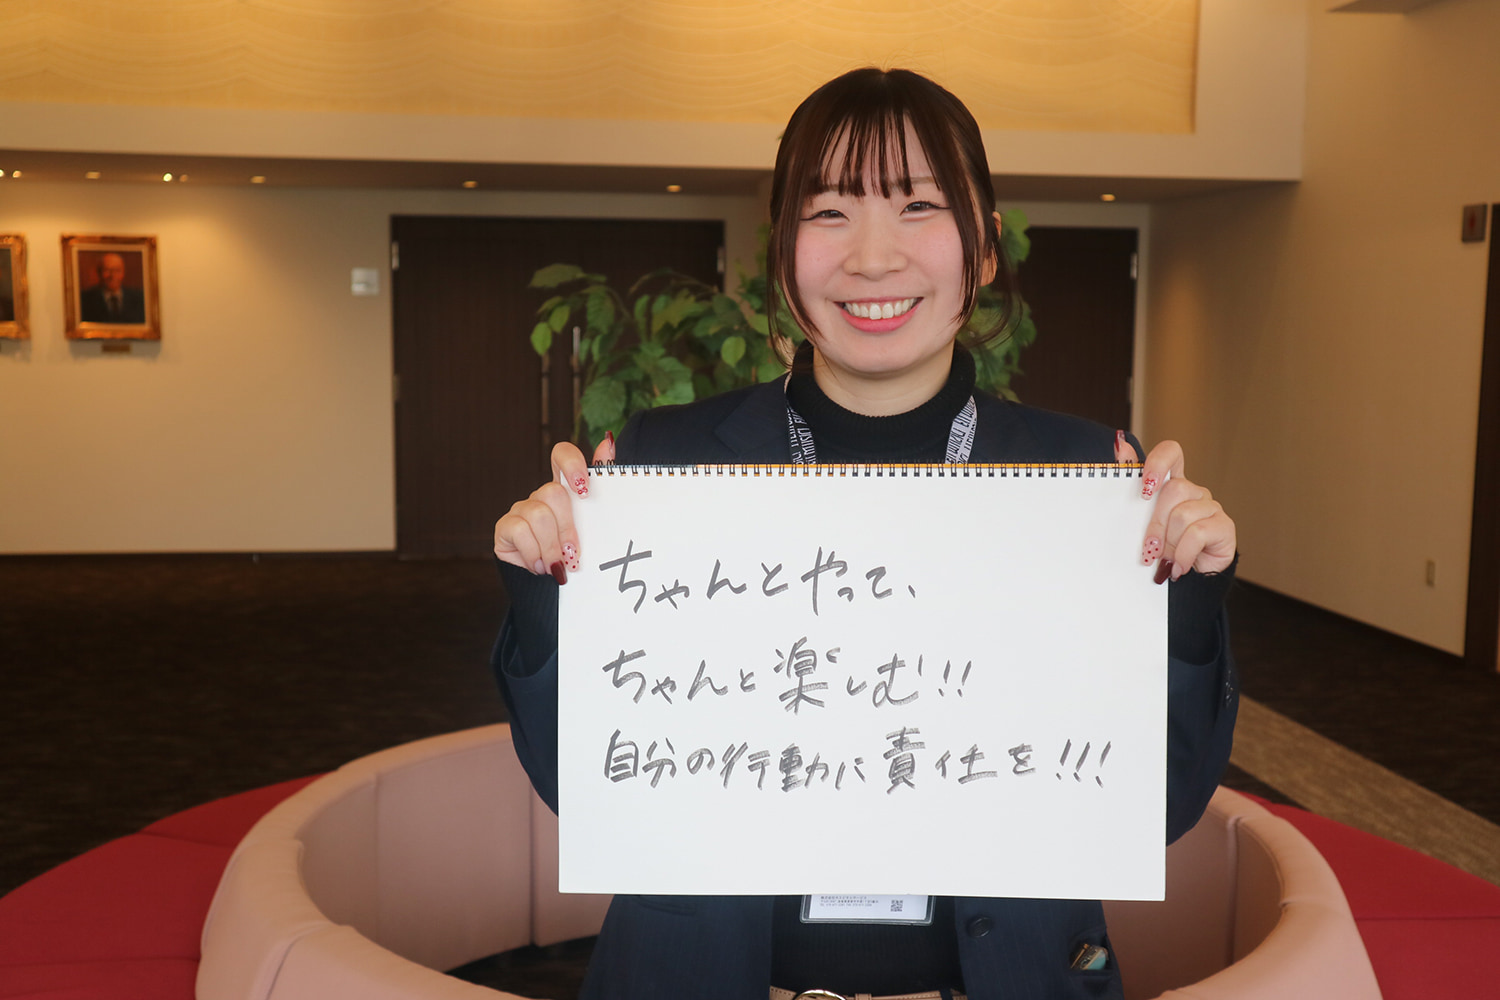 ちゃんとやって、
ちゃんと楽しむ!!
自分の行動に責任を!!!